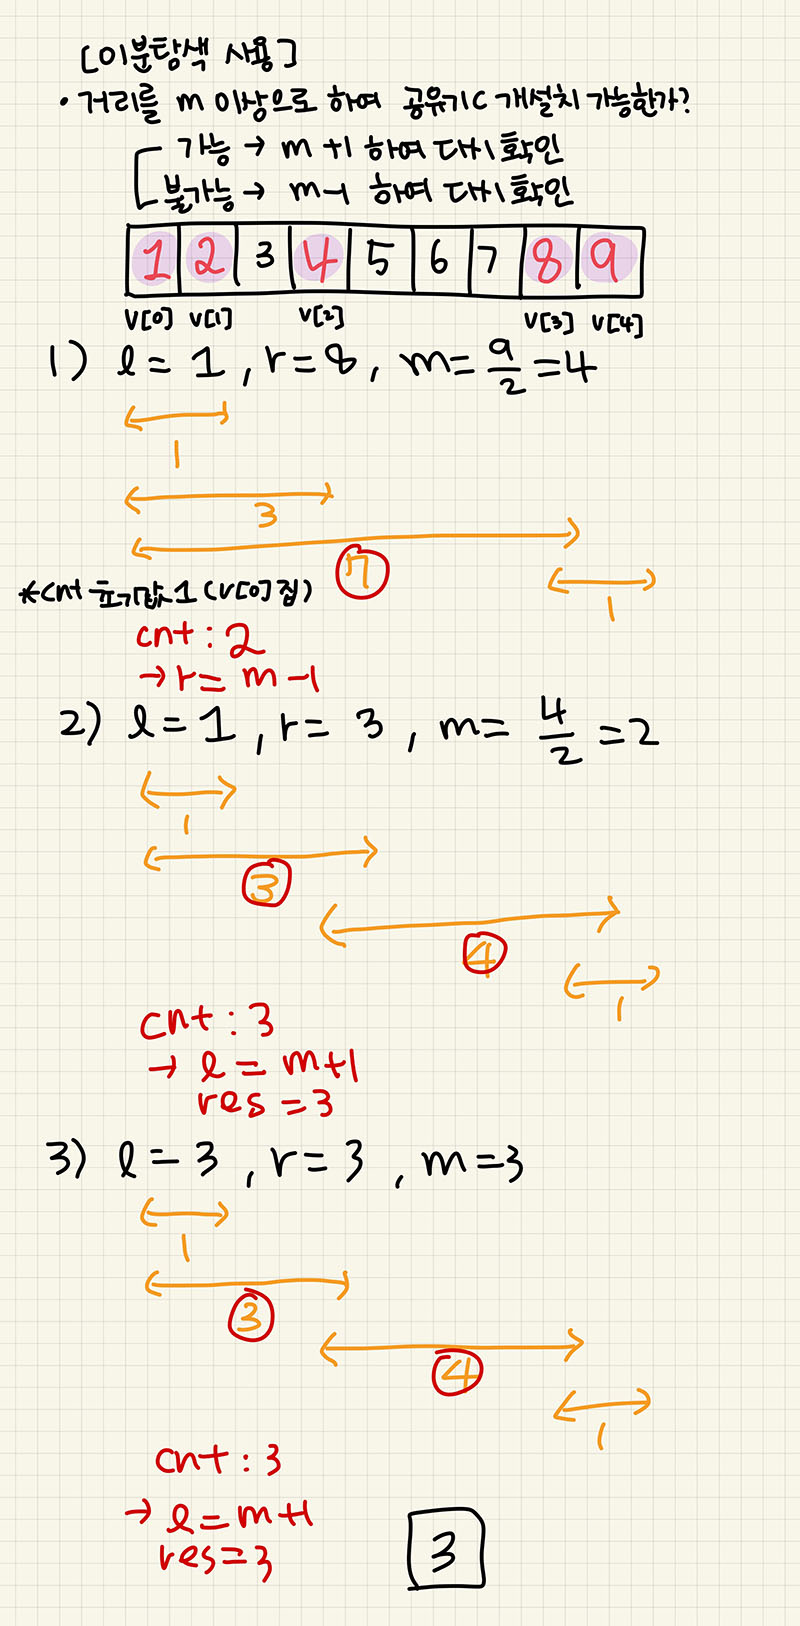 [이분탐색 사용]
• 거리를 m 이상으로 하여 공유기 C 개설치 가능한가?
가능 → m+1 하여 다시 확인
불가능 → m-1 하여 다시 확인
1 2 3 4 5 6 7 8 9
V[0] V[1] V[2] V[3] V[4]
1) l = 1, r = 8, m = 9/2 = 4
1
3
7
1
*cnt 초기값 1 (V[0] 집)
cnt : 2
→ r = m-1
2) l = 1, r = 3, m = 4/2 = 2
1
3
4
1
cnt : 3
→ l = m+1
res = 3
3) l = 3, r = 3, m = 3
1
3
4
1
cnt : 3
→ l = m+1
res = 3
3